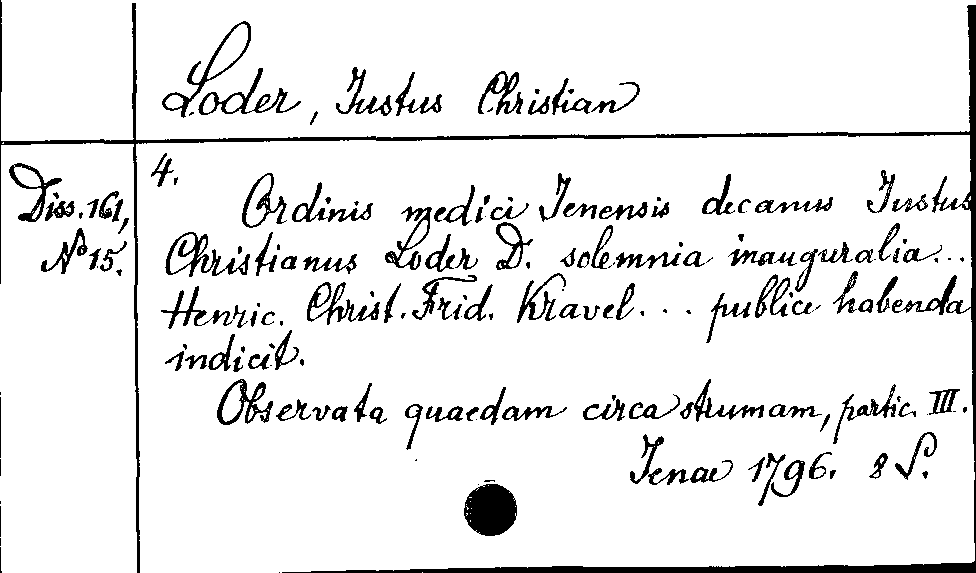 Loder, Iustus Christian
Diss. 161,
No 15.
4.
Ordinis medici Ienensis decanus Iustus
Christianus Loder D. solemnia inauguralia...
Henric. Christ. Frid. Kravel... publice habenda
indicit.
Observata quaedam circa strumam, partic. III.
Ienae 1796. 8 S.